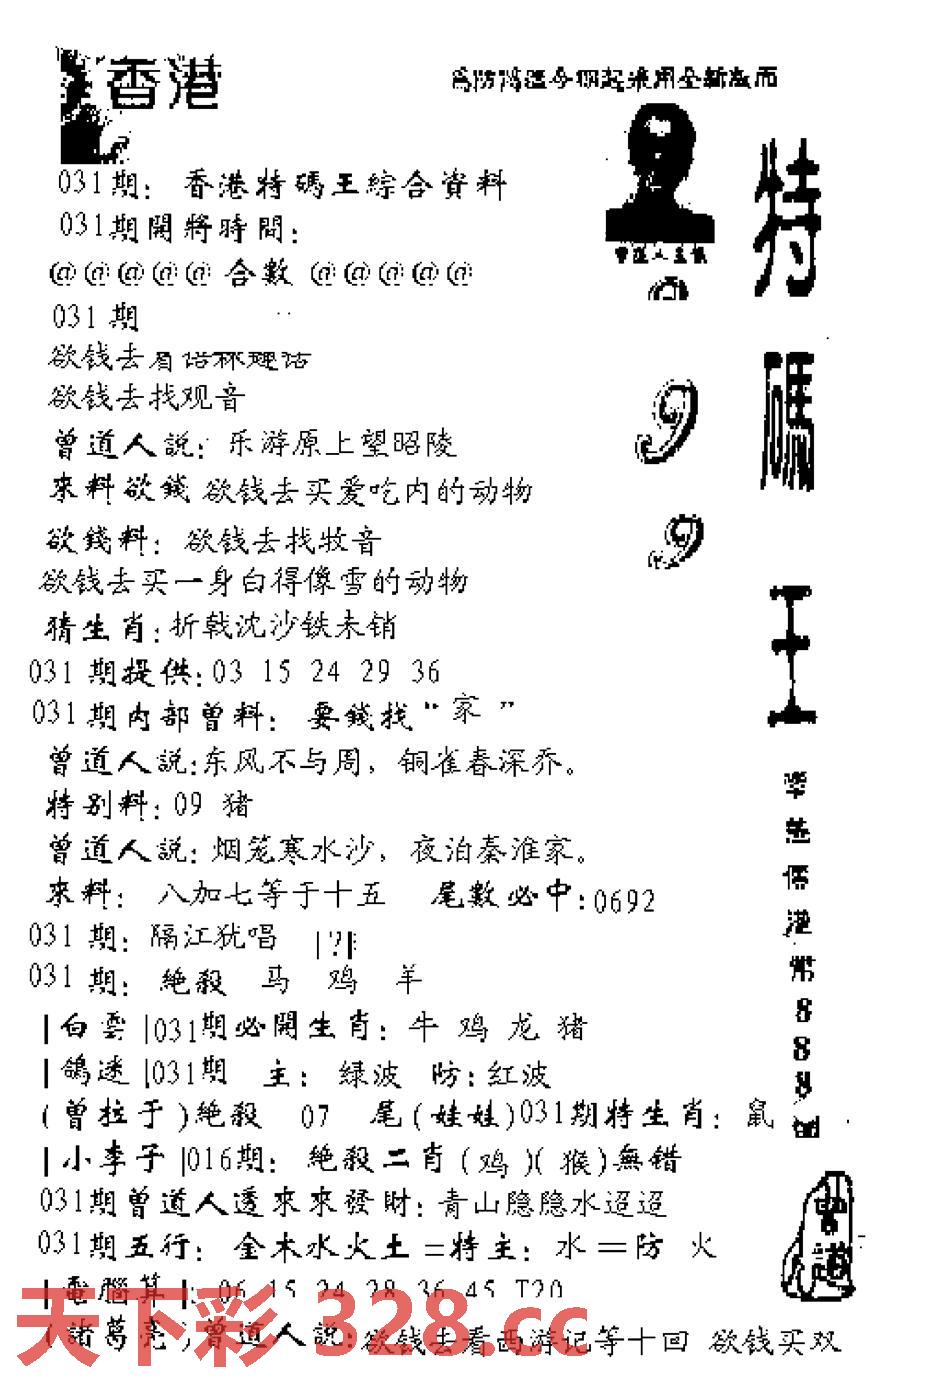 香港
031期：香港特碼王綜合資料
031期開將時間：
@@@@@合數@@@@@
031期
欲钱去
欲钱去找观音
曾道人説：乐游原上望昭陵
來料欲錢 欲钱去买爱吃内的动物
欲錢料：欲钱去找牧音
欲钱去买一身白得像雪的动物
猜生肖：折戟沈沙铁未销
031期提供：03 15 24 29 36
031期内部曾料：要錢找“家”
曾道人説：东风不与周，铜雀春深乔。
特别料：09 猪
曾道人説：烟笼寒水沙，夜泊秦淮家。
來料：八加七等于十五 尾數必中：0692
031期：隔江犹唱 |?|
031期：絶殺 马 鸡 羊
|白雲|031期必開生肖：牛 鸡 龙 猪
|鴿迷|031期 主：绿波 防：红波
(曾拉于)絶殺 07 尾(娃娃)031期特生肖：鼠
|小李子|016期：絶殺二肖(鸡)(猴)無錯
031期曾道人透來來發財：青山隐隐水迢迢
031期五行：金木水火土=特主：水=防 火
|電腦算|：06 15 24 28 36 45 T20
(諸葛亮)曾道人説：欲钱去看西游记等十回 欲钱买双
天下彩 328.cc
特碼王
9
9
港幣888
曾道